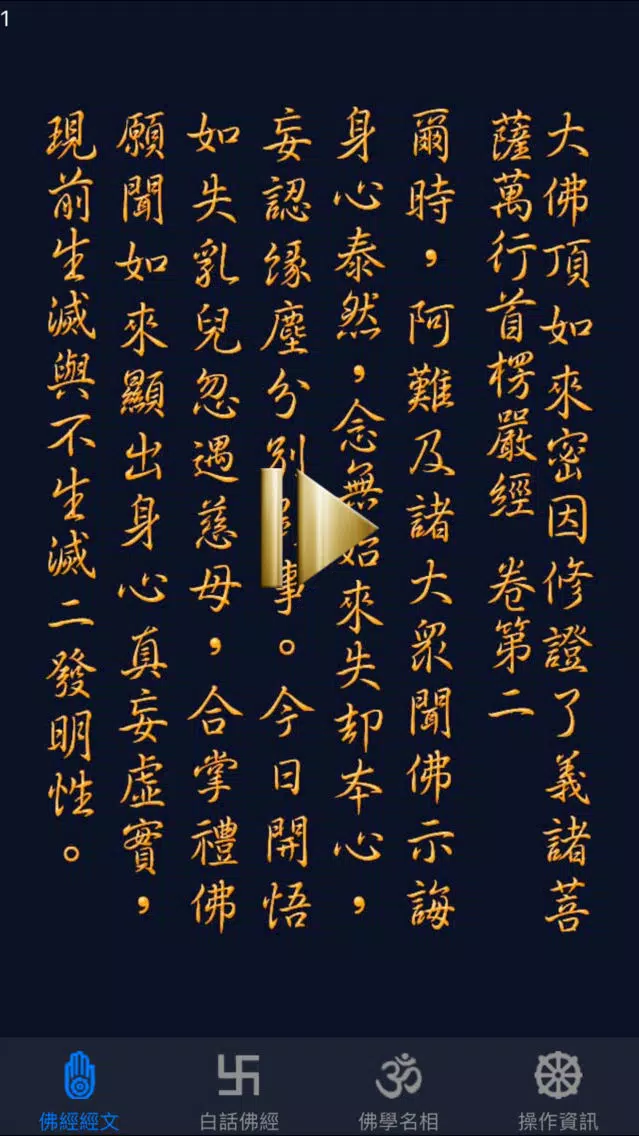 1
大佛頂如來密因修證了義諸菩
薩萬行首楞嚴經 卷第二
爾時，阿難及諸大眾聞佛示誨
身心泰然，念無始來失却本心，
妄認緣塵分別事。今日開悟
如失乳兒忽遇慈母，合掌禮佛
願聞如來顯出身心真妄虛實，
現前生滅與不生滅二發明性。
佛經經文
白話佛經
佛學名相
操作資訊